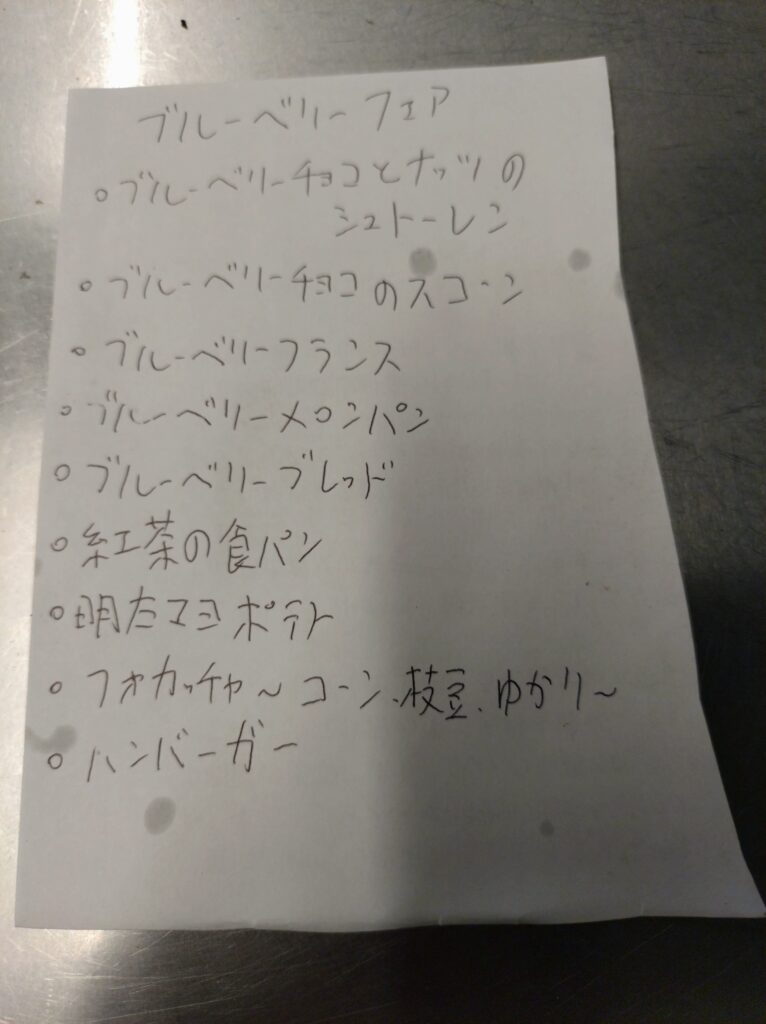 ブルーベリーフェア
○ブルーベリーチョコとナッツの
シュトーレン
○ブルーベリーチョコのスコーン
○ブルーベリーフランス
○ブルーベリーメロンパン
○ブルーベリーブレッド
○紅茶の食パン
○明太マヨポテト
○フォカッチャ~コーン、枝豆、ゆかり~
○ハンバーガー